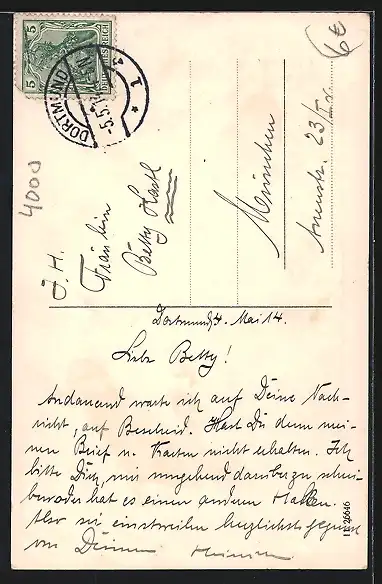 5
5
DEUTSCHES REICH
DORTMUND
5.5.14
* 1
6€
4000
I. H.
Fräulein
Betty Hartl
München
23/IV
Dortmund, 4. Mai 14.
Liebe Betty!
Andauernd warte ich auf Deine Nach-
richt, auf Bescheid. Hast Du denn mei-
nen Brief u. Karten nicht erhalten. Ich
bitte Dich, mir umgehend darüber zu schrei-
ben oder hat es einen anderen Haken.
Also sei einstweilen herzlichst gegrüsst
von Deinem Heinrich
11 26646